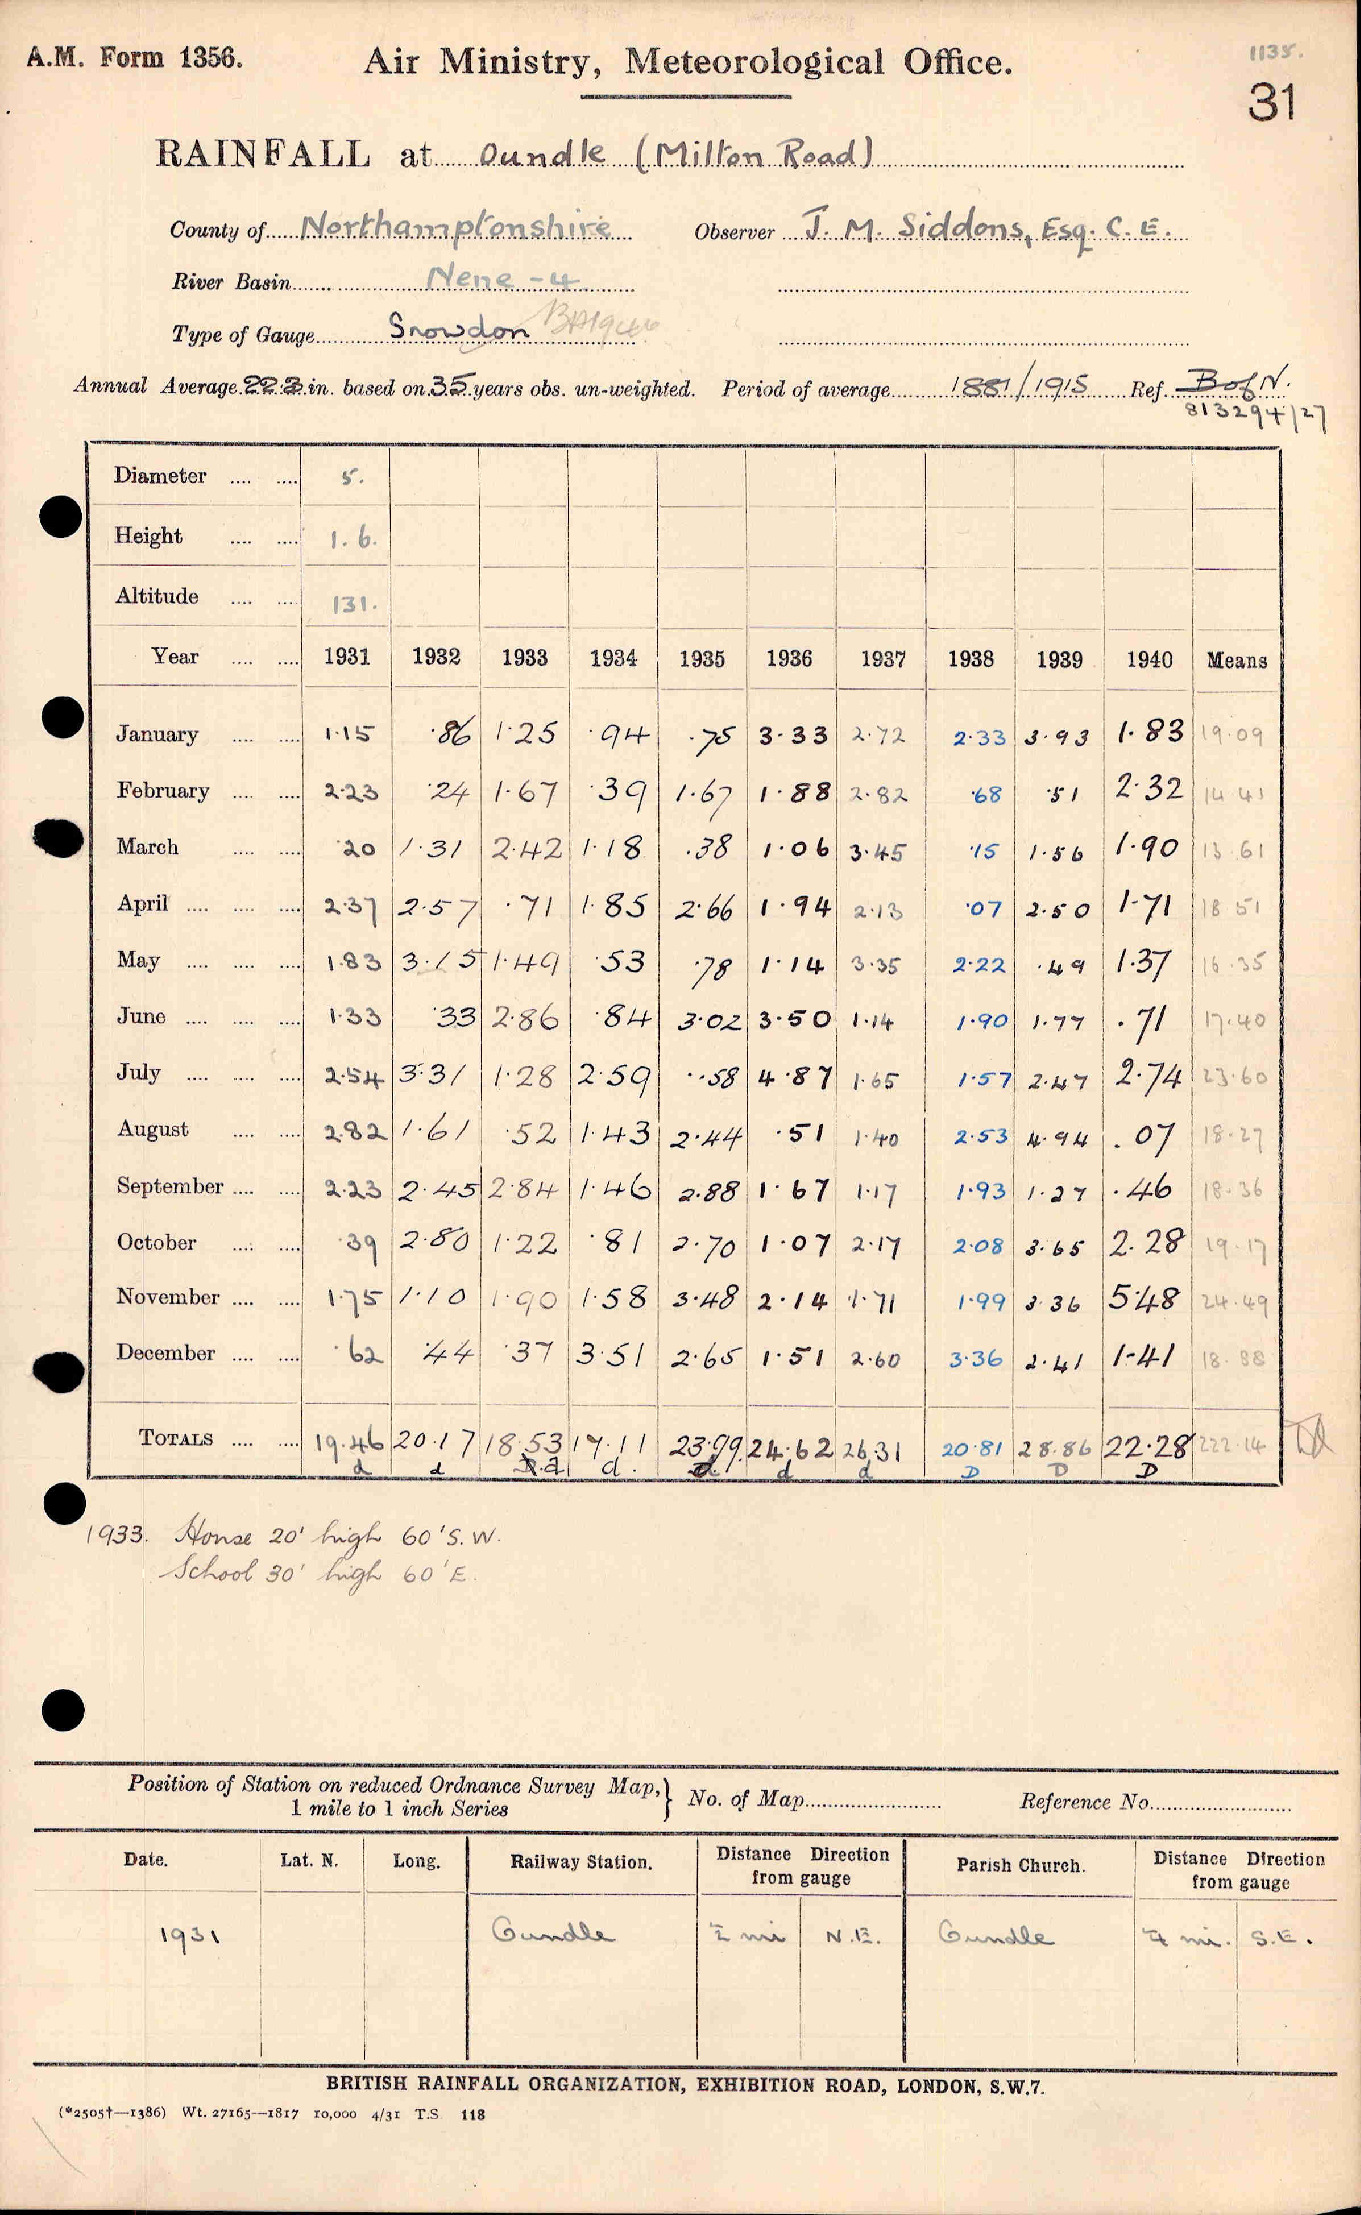 A.M. Form 1356. Air Ministry, Meteorological Office. 1135.
31
RAINFALL at Oundle (Milton Road)
County of Northamptonshire Observer J. M. Siddons, Esq. C. E.
River Basin Nene - 4
Type of Gauge Snowdon
Annual Average in. based on 35 years obs. un-weighted. Period of average 1881/1915 Ref. B of N.
813294/27
Diameter 5.
Height 1. 6.
Altitude 131.
Year 1931 1932 1933 1934 1935 1936 1937 1938 1939 1940 Means
January 1.15 .86 1.25 .94 .75 3.33 2.72 2.33 3.93 1.83 19.09
February 2.23 .24 1.67 .39 1.67 1.88 2.82 .68 .51 2.32 14 41
March .20 1.31 2.42 1.18 .38 1.06 3.45 .15 1.56 1.90 13 61
April 2.37 2.57 .71 1.85 2.66 1.94 2.13 .07 2.50 1.71 18 51
May 1.83 3.15 1.49 .53 .78 1.14 3.35 2.22 .49 1.37 16.35
June 1.33 .33 2.86 .84 3.02 3.50 1.14 1.90 1.77 .71 17.40
July 2.54 3.31 1.28 2.59 .58 4.87 1.65 1.57 2.47 2.74 23.60
August 2.82 1.61 .52 1.43 2.44 .51 1.40 2.53 4.94 .07 18.27
September 2.23 2.45 2.84 1.46 2.88 1.67 1.17 1.93 1.27 .46 18.36
October .39 2.80 1.22 .81 2.70 1.07 2.17 2.08 3.65 2.28 19.17
November 1.75 1.10 1.90 1.58 3.48 2.14 1.71 1.99 3.36 5.48 24.49
December .62 .44 .37 3.51 2.65 1.51 2.60 3.36 2.41 1.41 18.88
TOTALS 19.46 20.17 18.53 17.11 23.99 24.62 26.31 20.81 28.86 22.28 222.14
d d d d. d d d D D D
1933. House 20' high 60' S. W.
School 30' high 60' E.
Position of Station on reduced Ordnance Survey Map, 1 mile to 1 inch Series } No. of Map Reference No.
Date. Lat. N. Long. Railway Station. Distance Direction from gauge Parish Church. Distance Direction from gauge
1931 Oundle mi N.E. Oundle mi. S.E.
BRITISH RAINFALL ORGANIZATION, EXHIBITION ROAD, LONDON, S.W.7.
(*2505†—1386) Wt. 27165—1817 10,000 4/31 T.S. 118